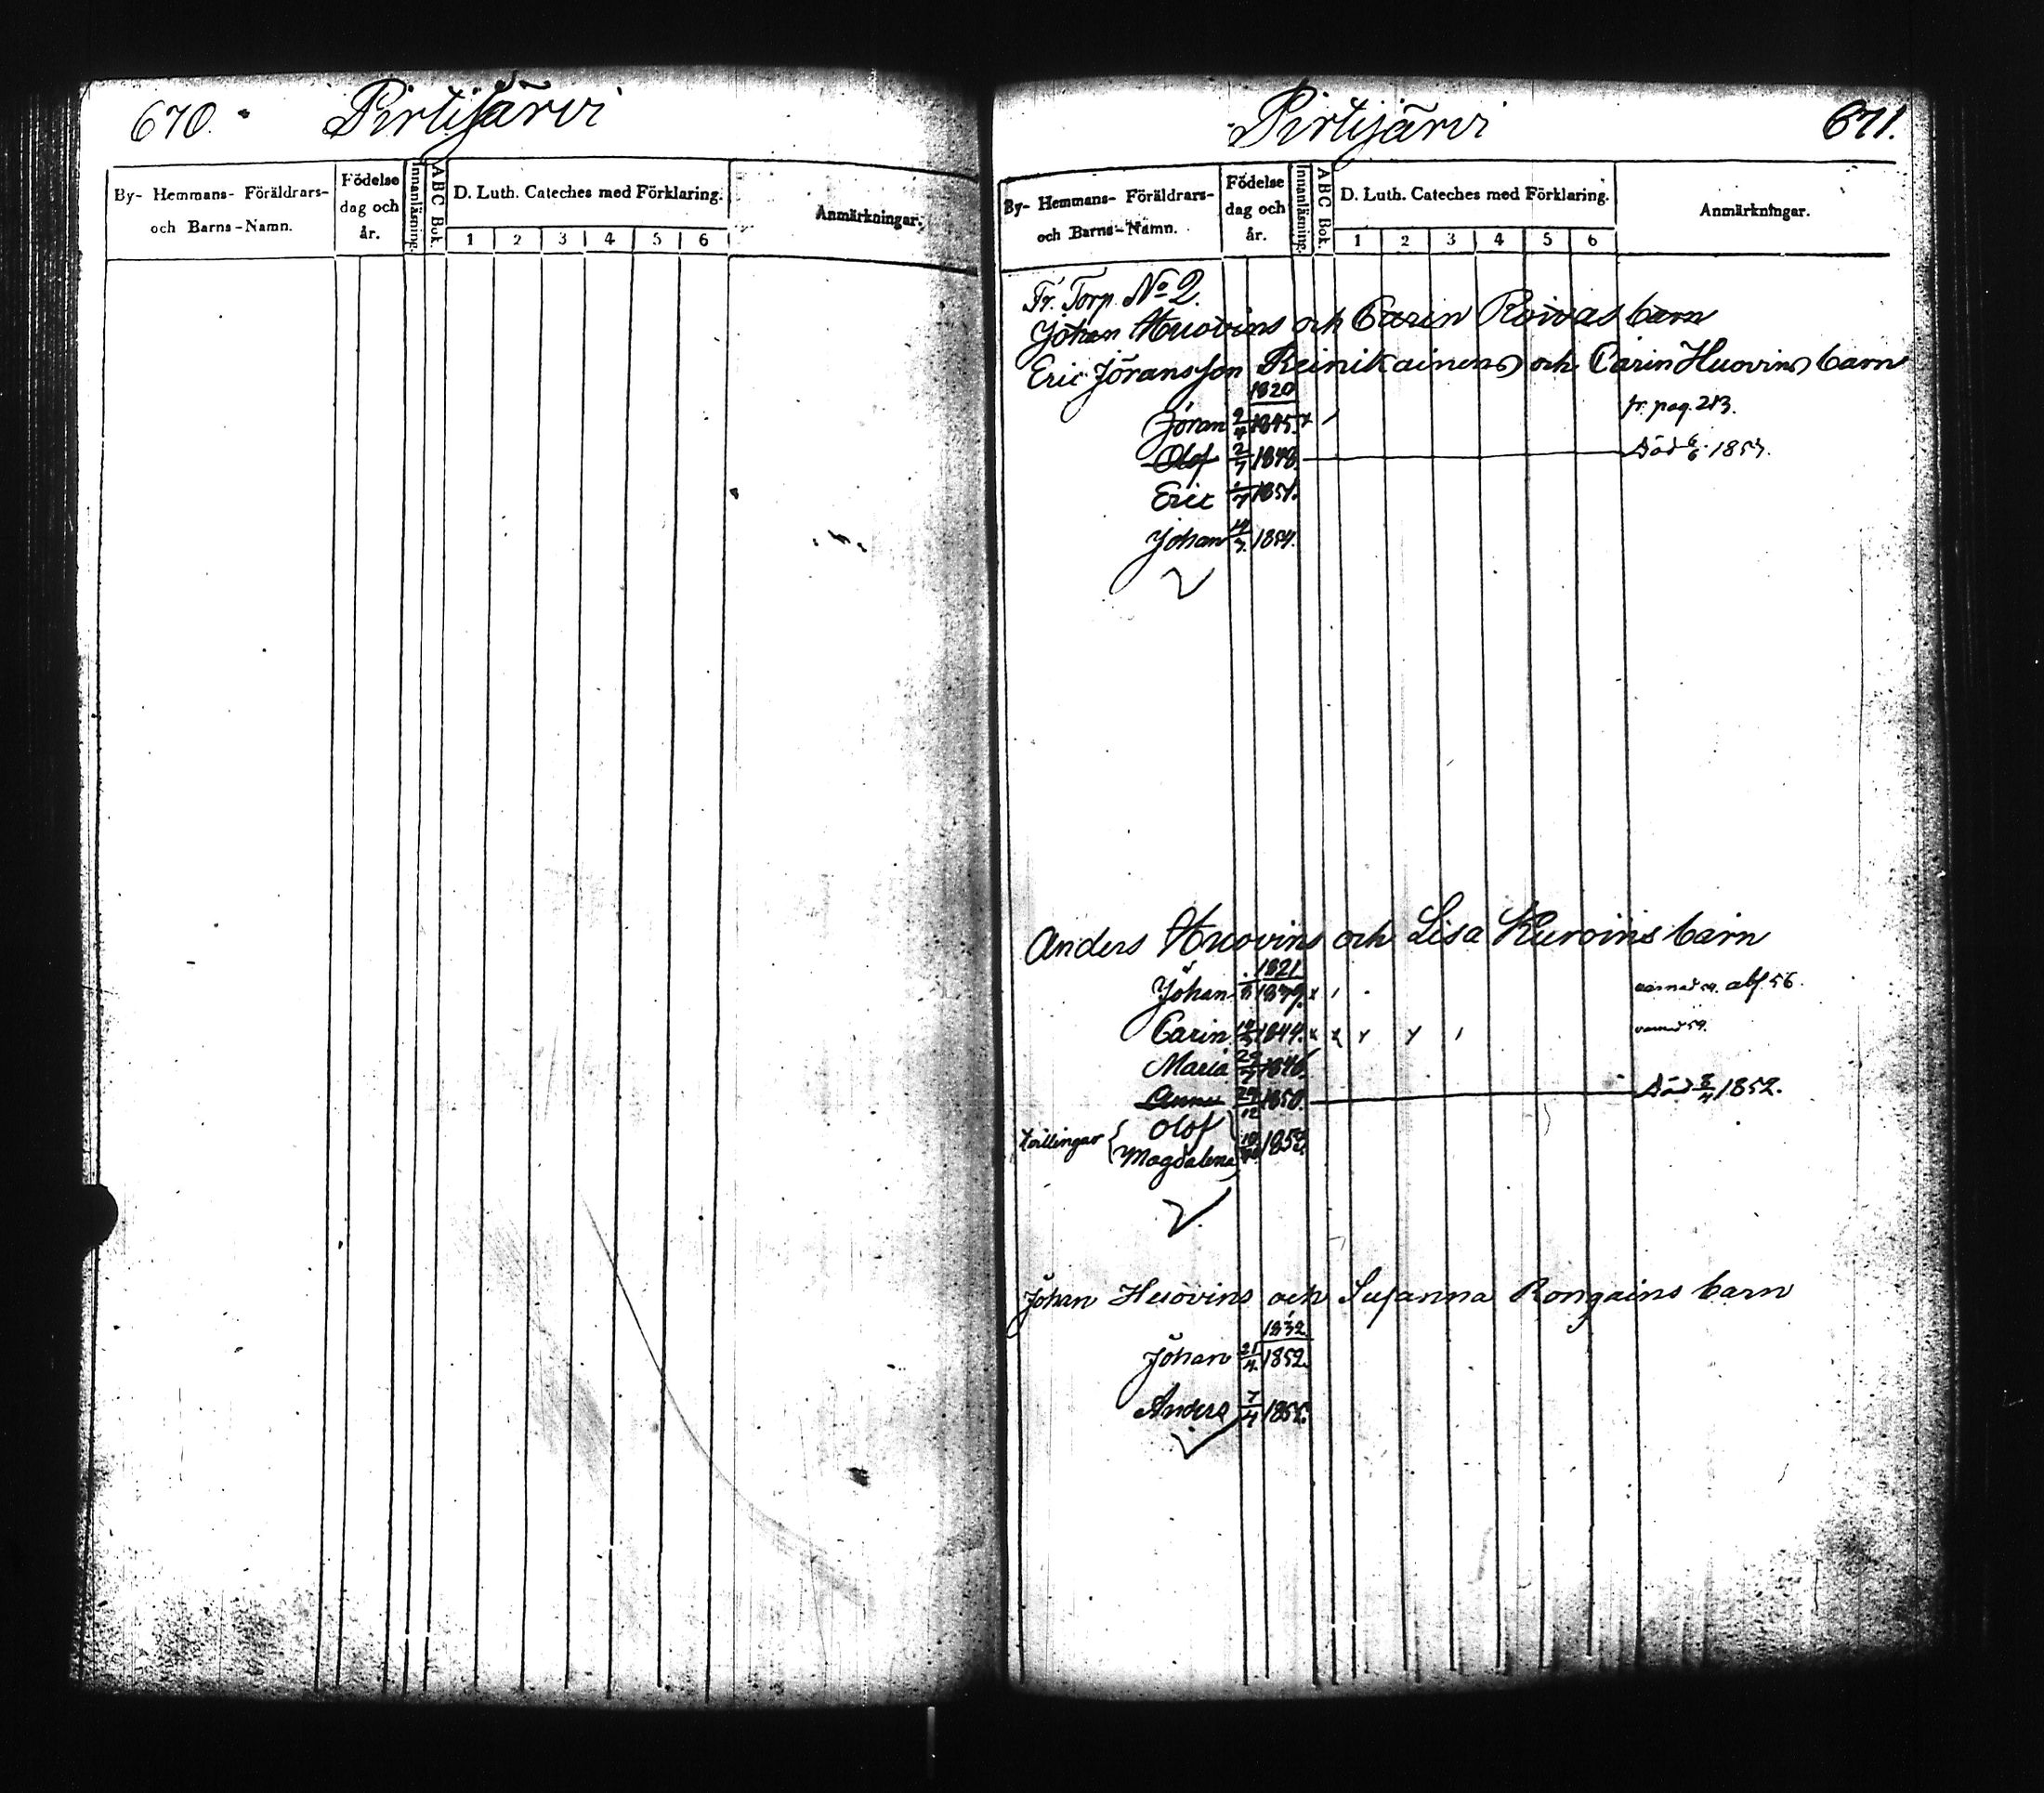 670. Pirtijärvi
By- Hemmans- Föräldrars- och Barns-Namn. Födelse dag och år. Innanläsning. ABC Bok. D. Luth. Cateches med Förklaring. 1 2 3 4 5 6 Anmärkningar.
Pirtijärvi 671.
By- Hemmans- Föräldrars- och Barns-Namn. Födelse dag och år. Innanläsning. ABC Bok. D. Luth. Cateches med Förklaring. 1 2 3 4 5 6 Anmärkningar.
Fr. Torp. No 2.
Johan Huovins och Carin Roivas barn
Eric Jöransson Reinikainens och Carin Huovins barn
1820
Jöran 2/4 1845. x / fr. pag. 213.
Olof 2/7 1848. Död 6/6 1857.
Eric /7 1851.
Johan 14/7. 1854.
Anders Huovins och Lisa Kurvins barn
1821
Johan /8 1839. x / abs. 56.
Carin 1844. x x y y /
Maria 29/7 1846.
Anna 29/12 1850. Död 3/4 1852.
tvillingar { Olof Magdalena } 1853.
Johan Huovins och Susanna Rongains barn
1832
Johan 21/4. 1852.
Anders 7/4 1855.